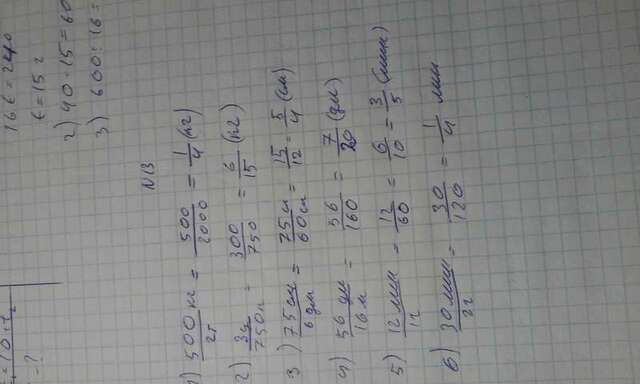 - ?
16t = 240
t = 15 г
2) 40 · 15 = 60
3) 600 : 16 =
N 13
1) 500 кг / 2т = 500 / 2000 = 1/4 (кг)
2) 3ц / 750 = 300 / 750 = 6/15 (кг)
3) 75 см / 6 дм = 75 / 60 = 15/12 = 5/4 (см)
4) 56 дм / 16 м = 56 / 160 = 7/20 (дм)
5) 12 мин / 1г = 12 / 60 = 6/10 = 3/5 (мин)
6) 30 мин / 2г = 30 / 120 = 1/4 мин